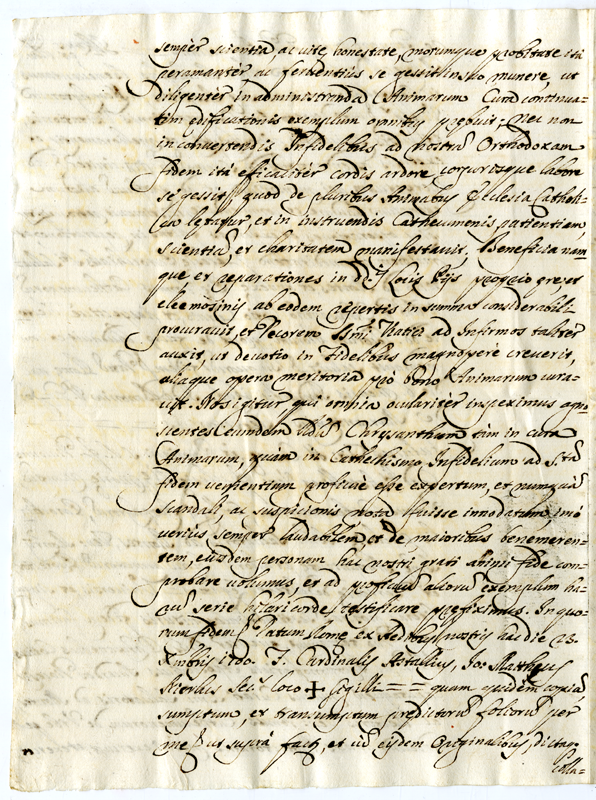 semper scientia, ac vite honestate, morumque probitate ita
peramanter ac ferventius se gessit in suo munere, ut
diligenter in administranda Animarum Cura continua-
tim edificationis exemplum omnibus prebuit, nec non
in conversendis Infidelibus ad nostram Orthodoxam
fidem ita efficaciter cordis ardore, corporisque labore
se gessit quod de pluribus Animabus Ecclesia Catholi-
ca letatur, et in instruendis Cathecumenis patientiam,
scientiam, et charitatem manifestavit. Beneficia nam
que et reparationes in d. Locis Pijs proprio ere, et
eleemosinis ab eodem repertis in summa considerabili
procuravit, et Decorem SSmi Viatici ad Infirmos taliter
auxit, ut devotio in Fidelibus magnopere creverit,
aliaque opera meritoria pro bono Animarum cura-
vit. Nos igitur qui omnia oculariter inspeximus agno
scentes eumdem Chrysanthum tam in cura
Animarum, quam in Cathechismo Infidelium ad S.tam
fidem vertentium proficue esse expertum, et numquam
scandali, ac suspicionis nota fuisse innodatum, imo
verius semper laudabilem, et de maioribus benemeren-
tem, eiusdem personam hac nostri grati animi fide com-
probare volumus, et ad profectum aliorum exemplum ha-
rum serie testificare prefiximus. In quo-
rum fidem Datum Rome ex Aedibus nostris hac die 23.
Xmbris 1700. F. Cardinalis Astallius, Jo: Mattheus
Secr.s loco + Sigilli = = quam quidem copiam
sumptam, et transumptam predictorum foliorum per
me ut supra factam, et cum eisdem Originalibus, dictam
colla=